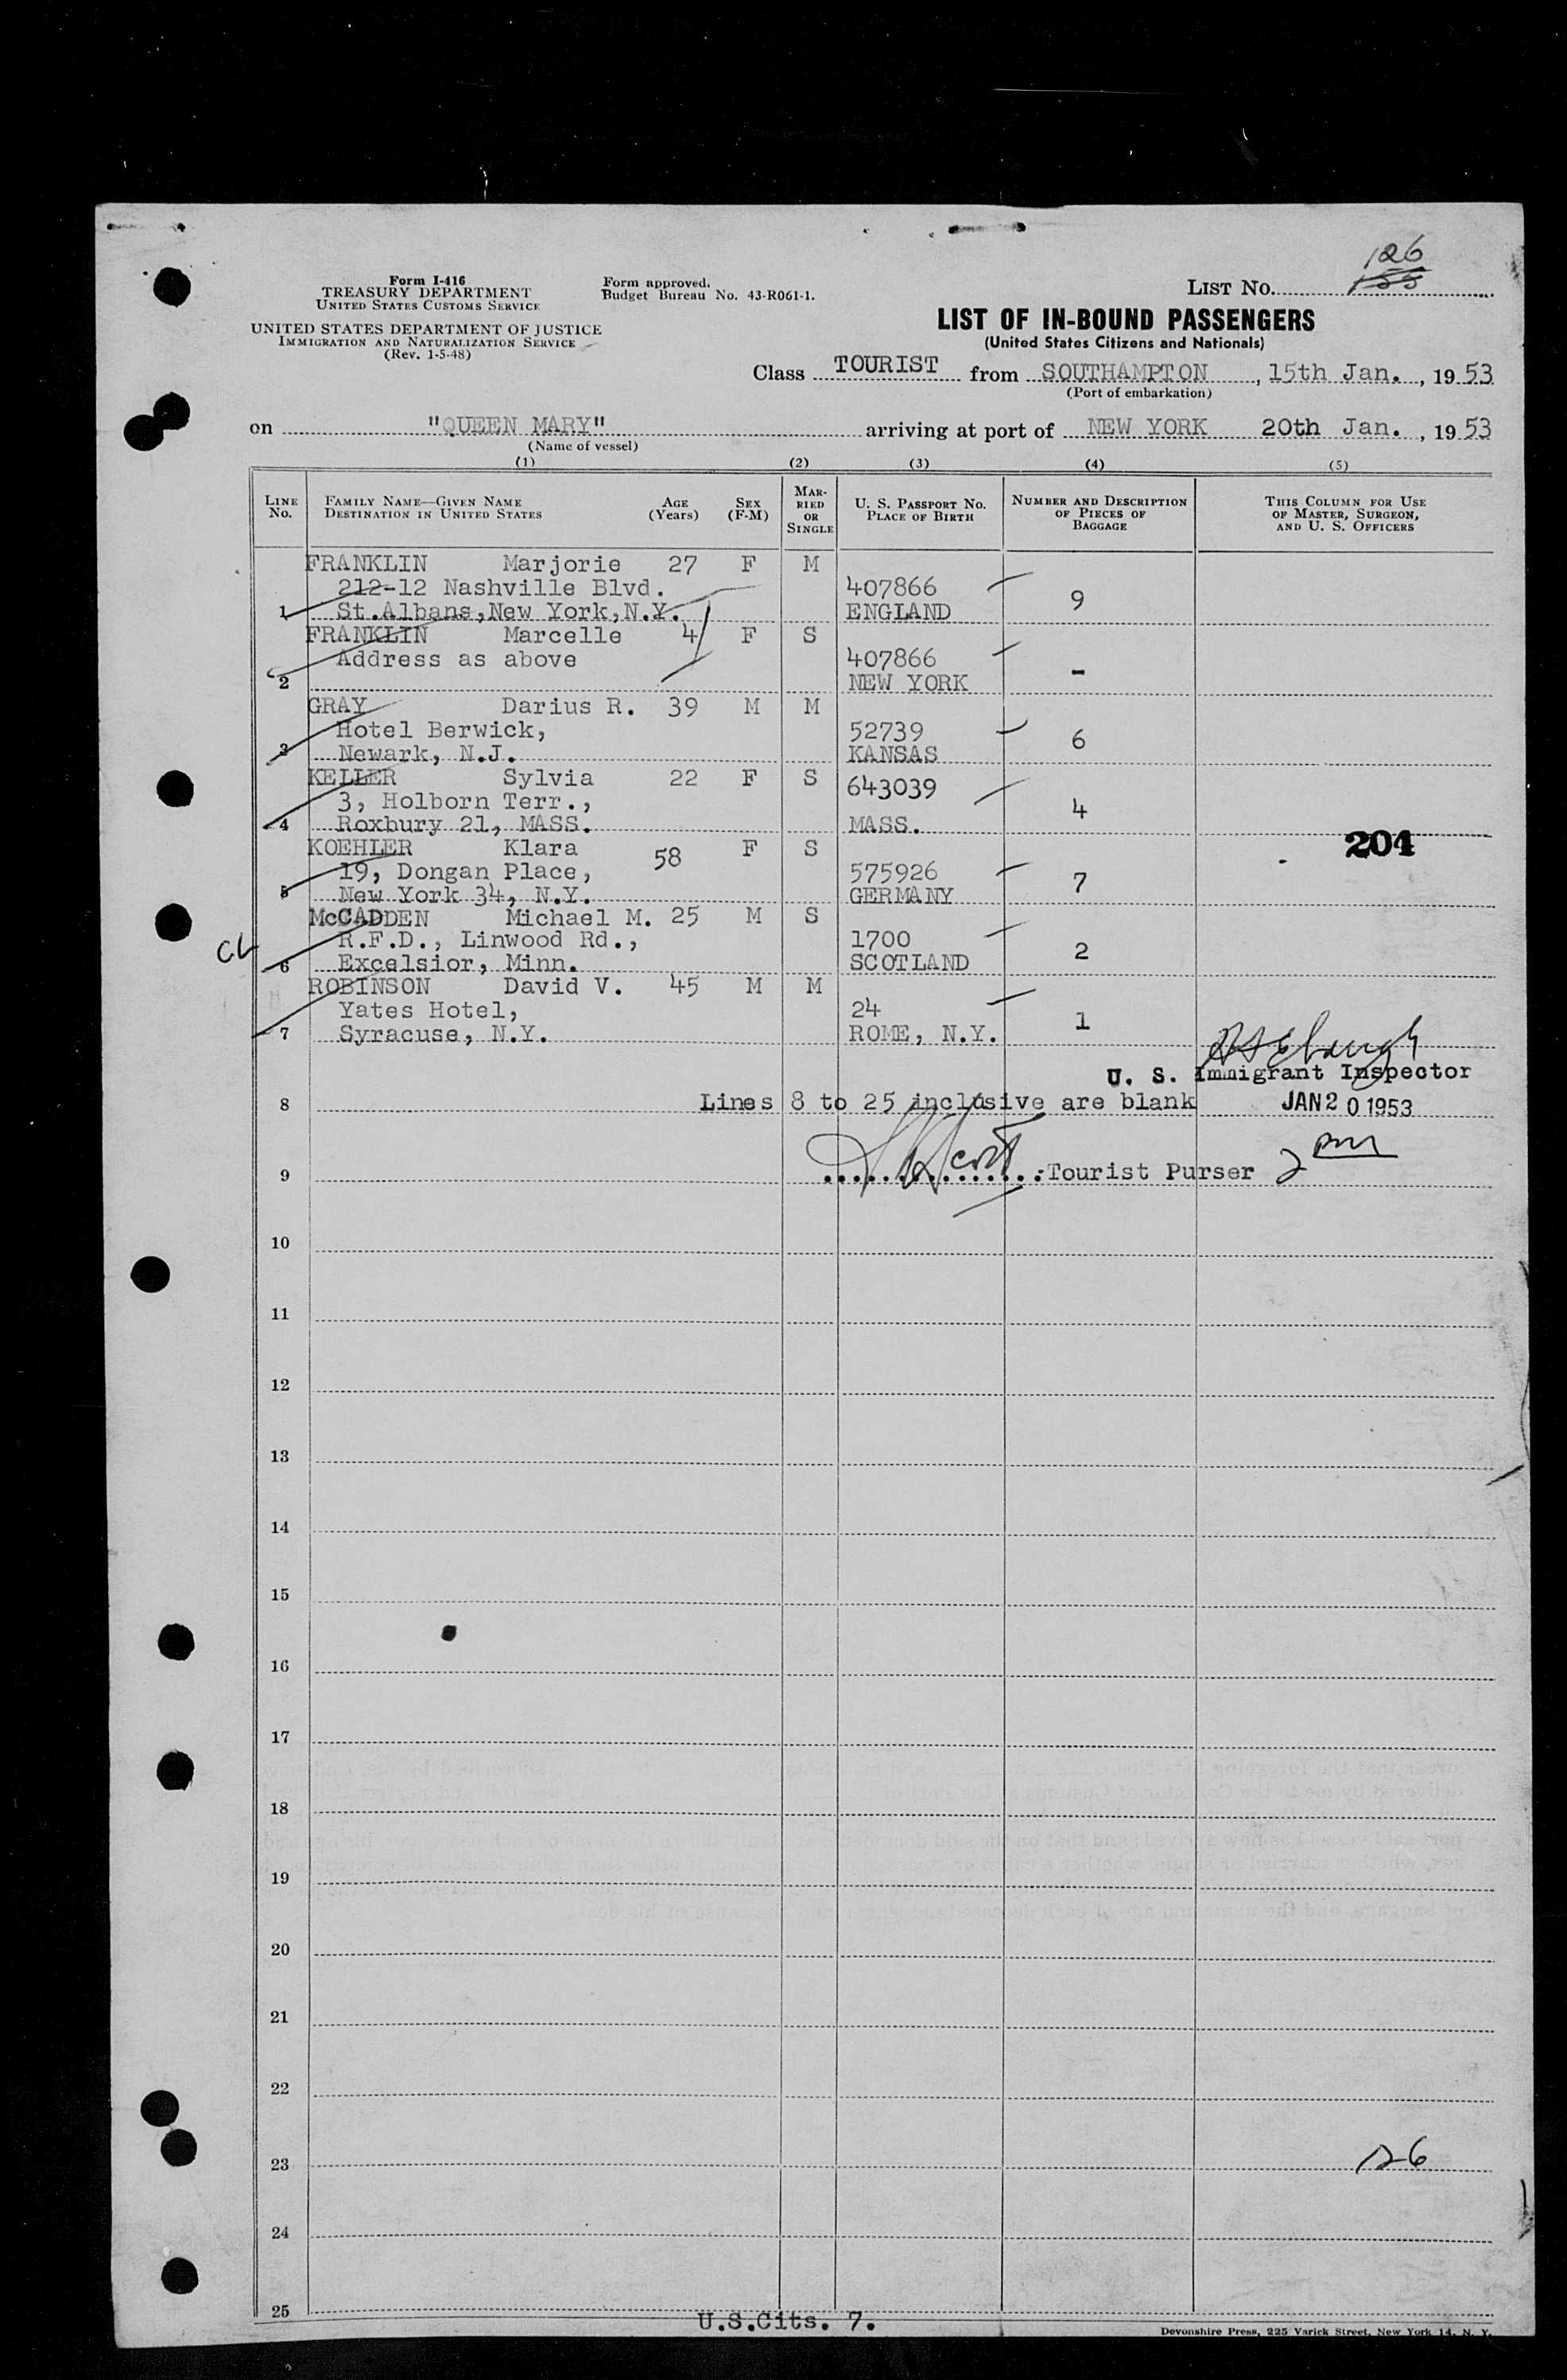 126
LIST No. 155
Form I-416
TREASURY DEPARTMENT
UNITED STATES CUSTOMS SERVICE
Form approved.
Budget Bureau No. 43-R061-1.
UNITED STATES DEPARTMENT OF JUSTICE
IMMIGRATION AND NATURALIZATION SERVICE
(Rev. 1-5-48)
LIST OF IN-BOUND PASSENGERS
(United States Citizens and Nationals)
Class TOURIST from SOUTHAMPTON, 15th Jan., 1953
(Port of embarkation)
on "QUEEN MARY" arriving at port of NEW YORK 20th Jan., 1953
(Name of vessel)
(1) (2) (3) (4) (5)
LINE No. FAMILY NAME—GIVEN NAME DESTINATION IN UNITED STATES AGE (Years) SEX (F-M) MARRIED OR SINGLE U. S. PASSPORT No. PLACE OF BIRTH NUMBER AND DESCRIPTION OF PIECES OF BAGGAGE THIS COLUMN FOR USE OF MASTER, SURGEON, AND U. S. OFFICERS
FRANKLIN Marjorie 27 F M
212-12 Nashville Blvd. 407866 9
1 St.Albans,New York,N.Y. ENGLAND
FRANKLIN Marcelle 4 F S
Address as above 407866 -
2 NEW YORK
GRAY Darius R. 39 M M
Hotel Berwick, 52739 6
3 Newark, N.J. KANSAS
KELLER Sylvia 22 F S 643039
3, Holborn Terr., 4
4 Roxbury 21, MASS. MASS.
204
KOEHLER Klara 58 F S
19, Dongan Place, 575926 7
5 New York 34, N.Y. GERMANY
McCADDEN Michael M. 25 M S
CL R.F.D., Linwood Rd., 1700 2
6 Excelsior, Minn. SCOTLAND
ROBINSON David V. 45 M M
Yates Hotel, 24 1
7 Syracuse, N.Y. ROME, N.Y.
U. S. Immigrant Inspector
8 Lines 8 to 25 inclusive are blank JAN 20 1953
9 Scott :Tourist Purser 2 PM
10
11
12
13
14
15
16
17
18
19
20
21
22
23 126
24
25
U.S.Cits. 7.
Devonshire Press, 225 Varick Street, New York 14, N. Y.